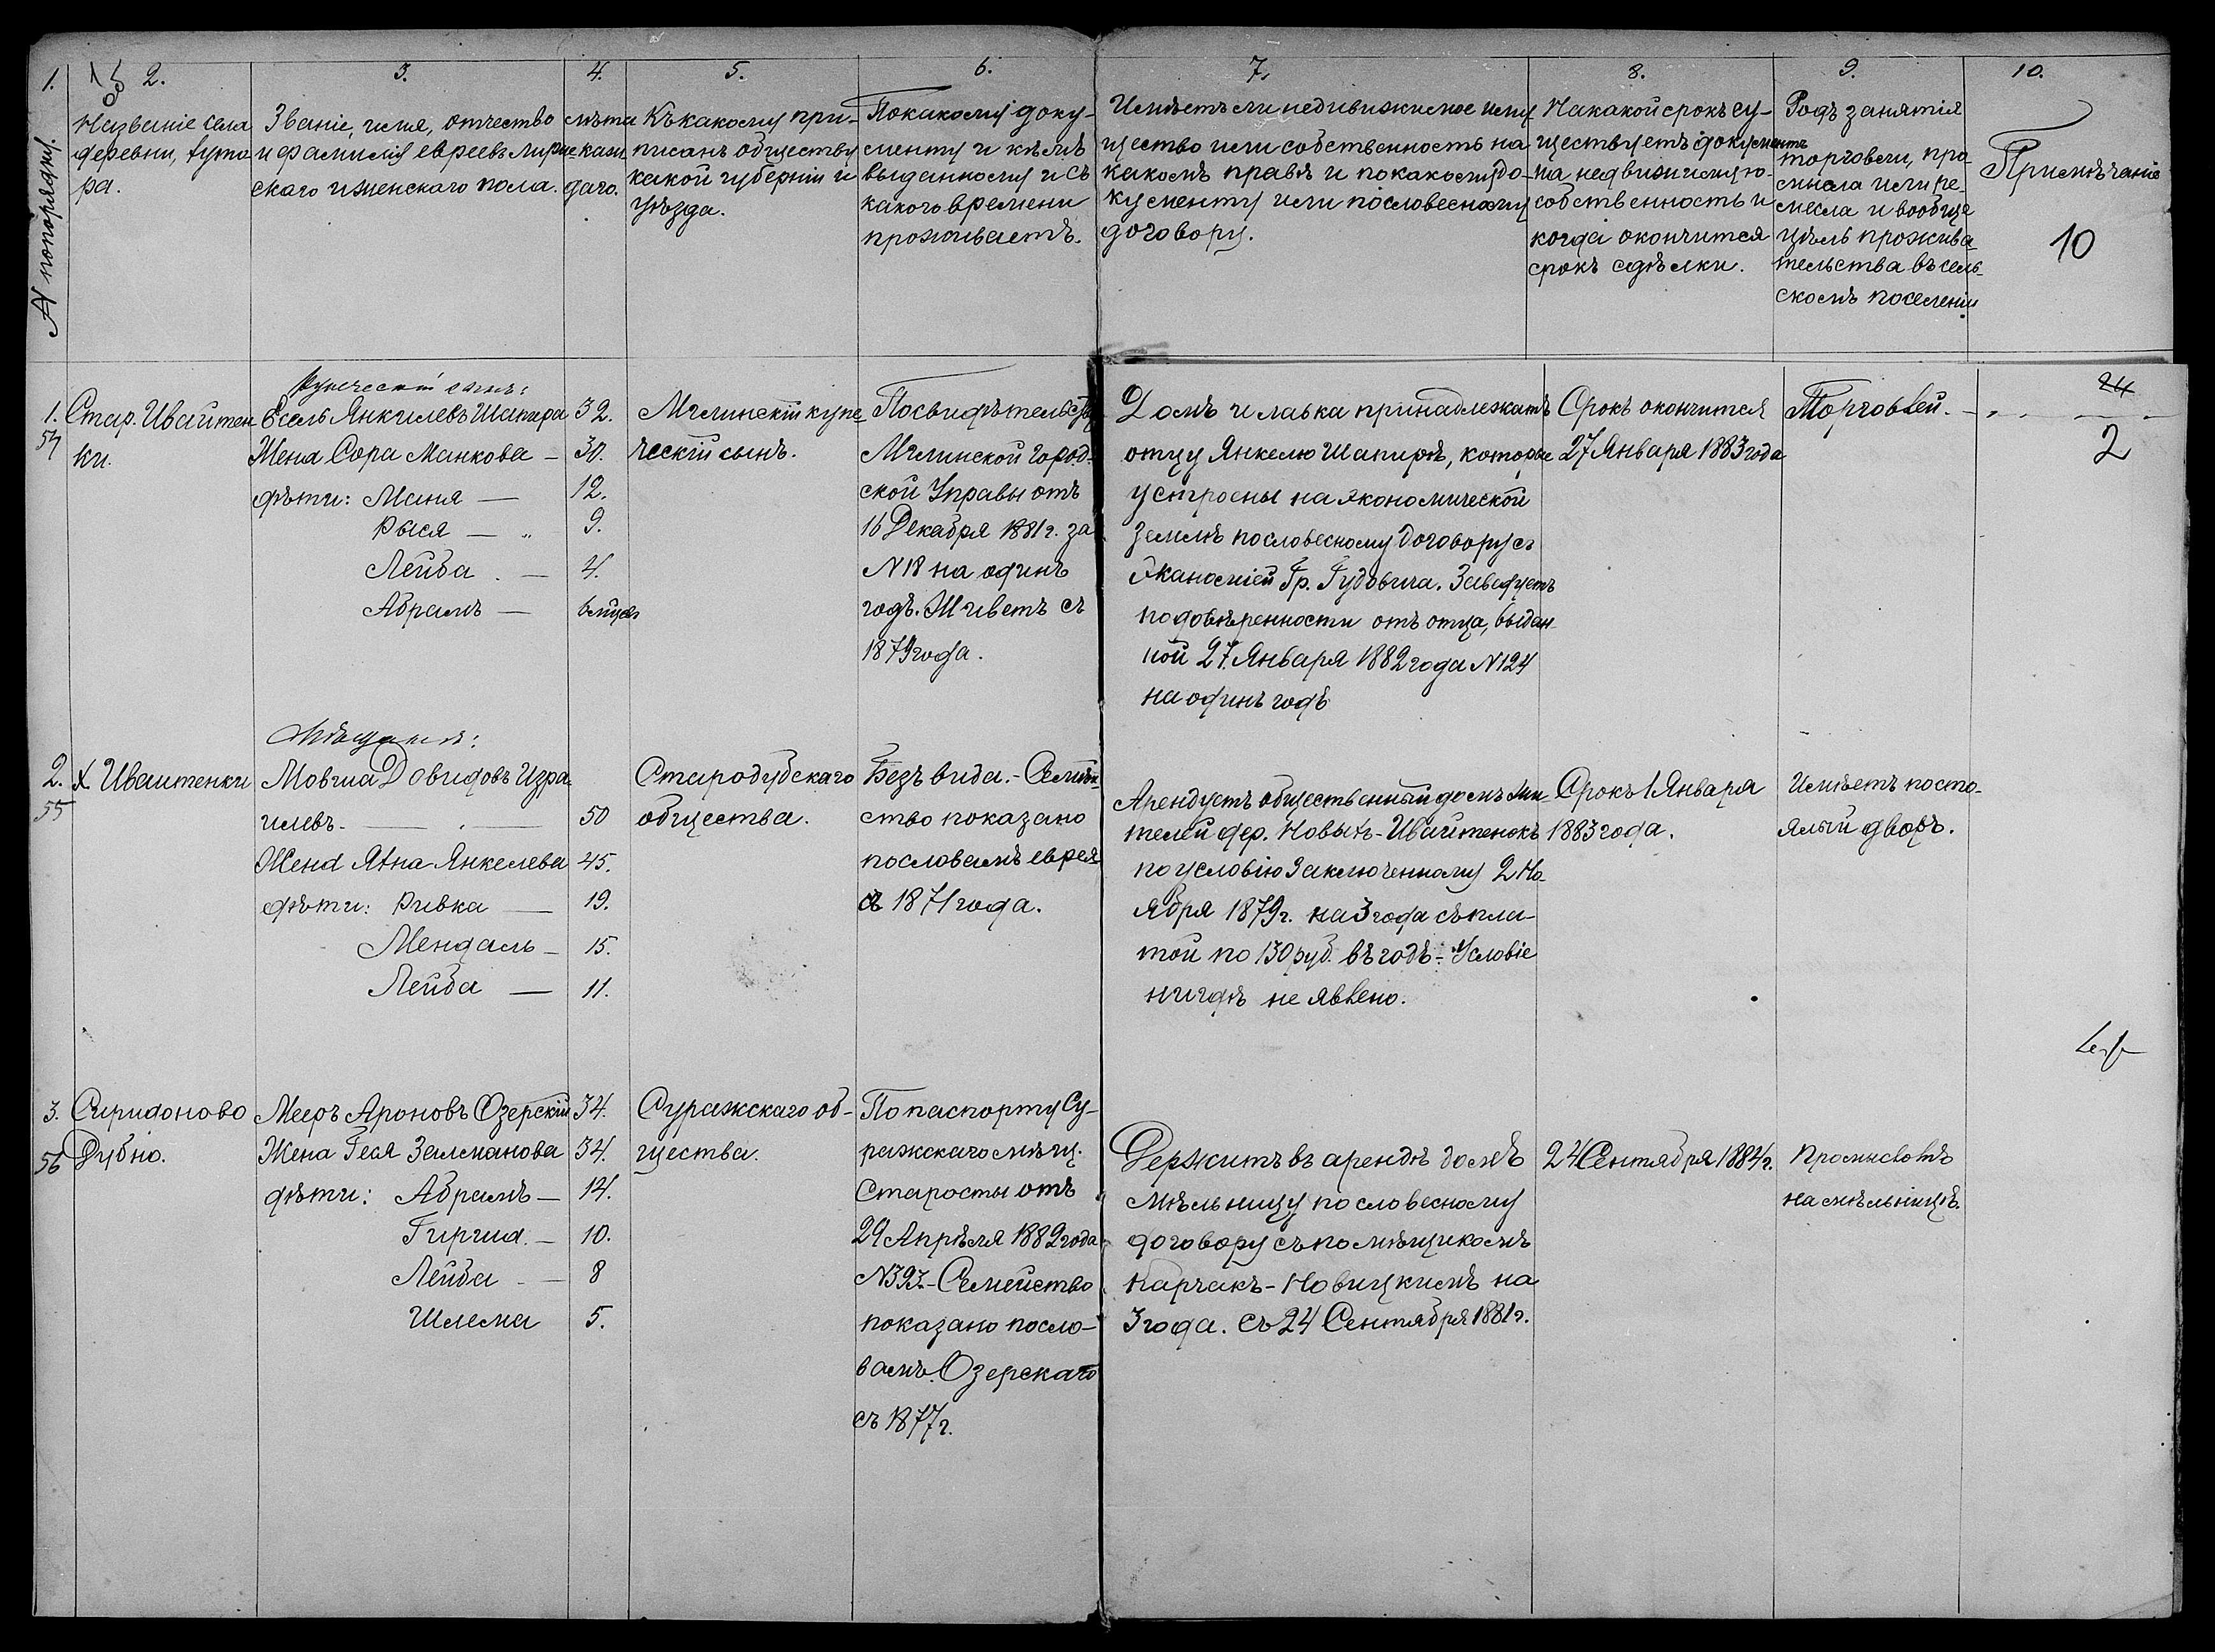 1.
2.
3.
4.
5.
6.
7.
8.
9.
10.
№ по порядку.
Названіе села
деревни, хуто
ра.
Званіе, имя, отчество
и фамилія евреевъ муже
скаго и женскаго пола.
лѣта
кажд
даго.
Къ какому при-
писанъ обществу
какой губерніи и
уѣзда.
По какому доку-
менту и кѣмъ
выданному и съ
какого времени
проживаетъ.
Имѣетъ ли недвижимое иму
щество или собственность на
какомъ правѣ и по какому до-
кументу или по словесному
договору.
На какой срокъ су-
ществуетъ документъ
на недвижимую
собственность и
когда окончится
срокъ сдѣлки.
Родъ занятія
торговли, про-
мысла или ре-
месла и вообще
цѣль прожива
тельства въ сель-
скомъ поселеніи
Примѣчаніе
10
1.
54
Стар. Ивайтен
ки.
Купеческій сынъ:
Есель Янкилевъ Шапира 32.
Жена Сора Манкова — 30.
дѣти: Маня — 12.
Рыся — " 9.
Лейба . — 4.
Абрамъ — 6 мѣсяц
Мглинскій купе
ческій сынъ.
По свидѣтельству
Мглинской Город.
ской Управы отъ
16 Декабря 1881 г. за
№ 18 на одинъ
годъ. Живетъ съ
1879 года.
Домъ и лавка принадлежатъ
отцу Янкелю Шапирѣ, которые
устроены на экономической
землѣ по словесному договору съ
Экономіей Гр. Гудовича. Завѣдуетъ
по довѣренности отъ отца, выдан-
ной 27 Января 1882 года № 124
на одинъ годъ
Срокъ окончится
27 Января 1883 года
Торговлей.
24
2
2.
55
х. Иваитенки
Мѣщане:
Мовша Довидовъ Изра
илевъ. — 50
Жена Яхна Янкелева 45.
дѣти: Ривка — 19.
Мендаль — 15.
Лейба — 11.
Стародубскаго
общества.
Безъ вида. - Семей-
ство показано
по словамъ еврея
съ 1871 года.
Арендуетъ общественный домъ жи-
телей дер. Новыхъ-Ивайтенокъ
по условію заключенному 2 Но-
ября 1879 г. на 3 года съ пла-
той по 130 руб. въ годъ. - Условіе
нигдѣ не явлено.
Срокъ 1 Января
1883 года.
Имѣетъ посто-
ялый дворъ.
3.
56
Спиридоново
Рубно.
Мееръ Ароновъ Озерскій 34.
Жена Геся Залманова 34.
дѣти: Абрамъ — 14.
Гиршъ. — 10.
Лейба — 8
Шлема 5.
Суражскаго об-
щества.
По паспорту Су-
ражскаго мѣщ.
Старосты отъ
29 Апрѣля 1882 года
№ 393 - Семейство
показано по сло-
вамъ Озерскаго
съ 1877 г.
Держитъ въ арендѣ домъ
мѣльницу по словесному
договору съ помѣщикомъ
Карчакъ-Новицкимъ на
3 года. съ 24 Сентября 1881 г.
24 Сентября 1884 г.
Промысломъ
на мѣльницѣ.